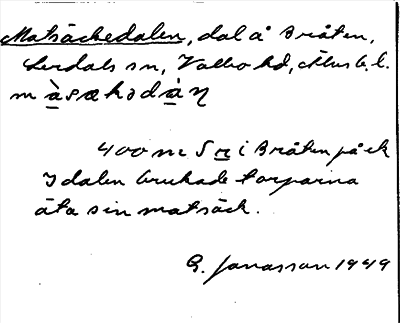 Matsäckedalen, dal å Bråten,
Lerdals sn, Valbo hd, Älvsb. l.
màsækədàη
400 m S n i Bråten på ek
I dalen brukade torparna
äta sin matsäck.
G. Jonasson 1949